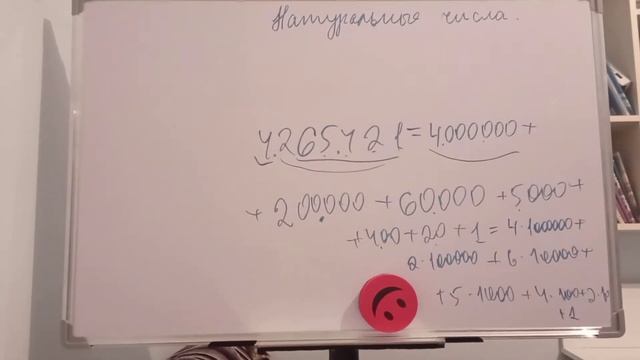 Натуральные числа.
4265421 = 4.000.000 +
+ 200.000 + 60.000 + 5.000 +
+ 400 + 20 + 1 = 4·1000000 +
2·100000 + 6·10000 +
+ 5·1000 + 4·100 + 2·10
+ 1